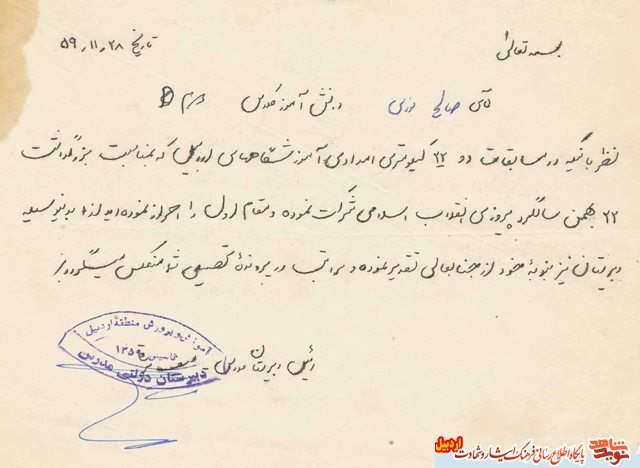 بسمه تعالی
تاریخ ۲۸ر۱۱ر۵۹
آقای صالح دانش آموز کلاس
نظر باینکه در مسابقات دو ۲۲ کیلومتری امدادی آموزشگاههای اردبیل که بمناسبت بزرگداشت
۲۲ بهمن سالگرد پیروزی انقلاب اسلامی شرکت نموده و مقام اول را احراز نموده اید لذا بدینوسیله
دبیرستان نیز بنوبهٔ خود از جنابعالی تقدیر نموده و مراتب در پروندهٔ تحصیلی شما منعکس میگردد
رئیس دبیرستان مدرس
آموزش و پرورش منطقه اردبیل
تاسیس ۱۳۵۹
دبیرستان دولتی مدرس
نوید شاهد
پایگاه اطلاع رسانی فرهنگ ایثار و شهادت اردبیل